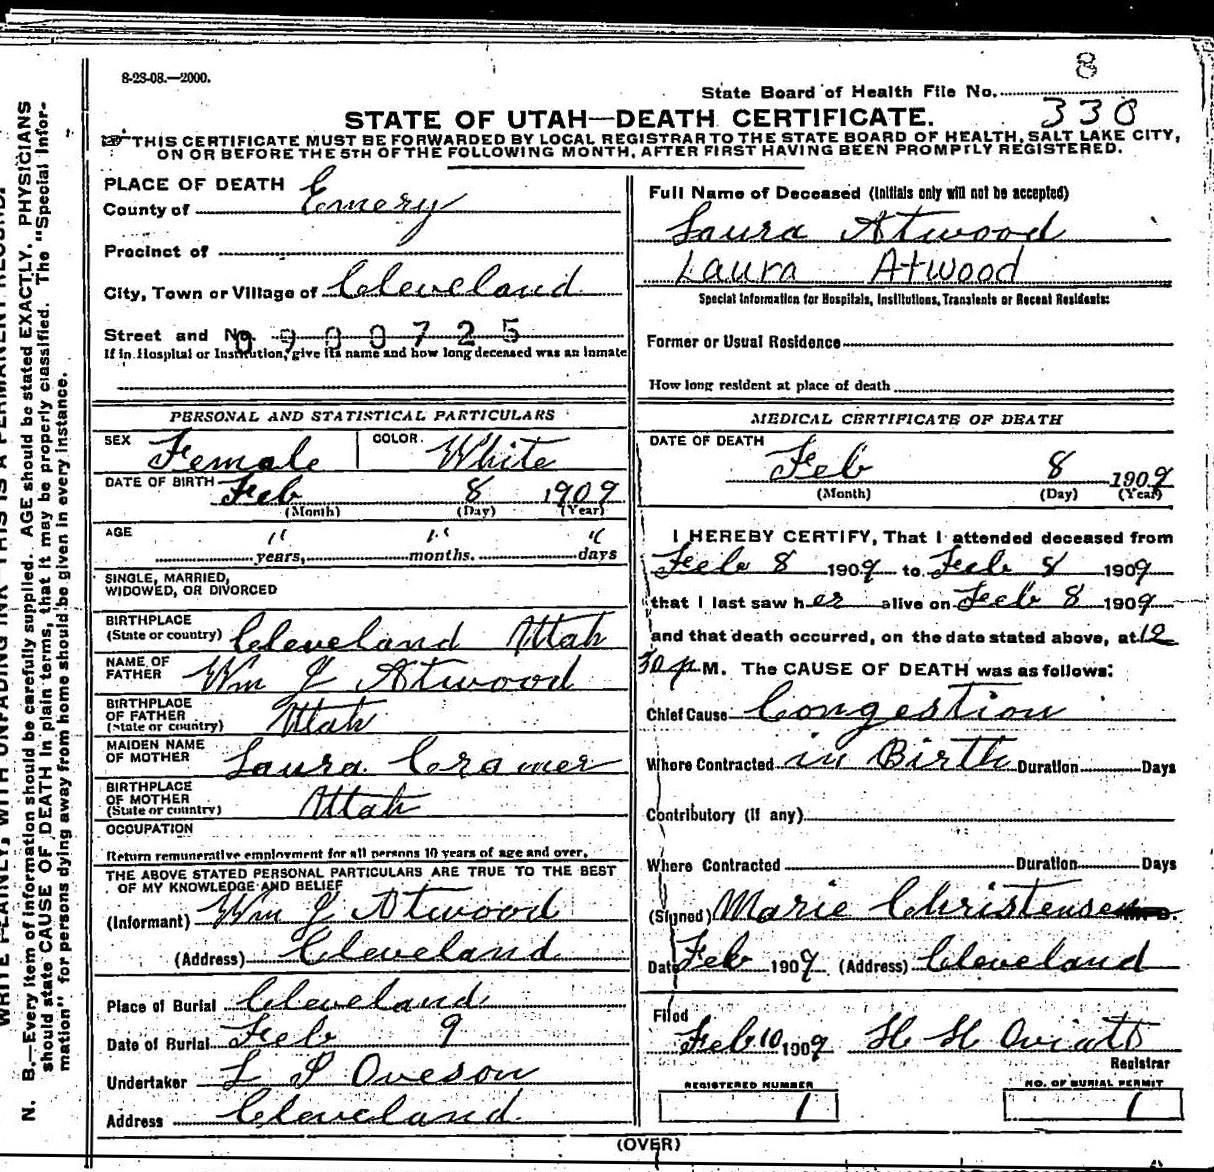 8-28-08.—2000.
8
State Board of Health File No.
330
STATE OF UTAH—DEATH CERTIFICATE.
THIS CERTIFICATE MUST BE FORWARDED BY LOCAL REGISTRAR TO THE STATE BOARD OF HEALTH, SALT LAKE CITY,
ON OR BEFORE THE 5TH OF THE FOLLOWING MONTH, AFTER FIRST HAVING BEEN PROMPTLY REGISTERED.
PLACE OF DEATH
County of Emery
Precinct of
City, Town or Village of Cleveland
Street and No.
0900725
If in Hospital or Institution, give its name and how long deceased was an inmate
Full Name of Deceased (Initials only will not be accepted)
Laura Atwood
Laura Atwood
Special Information for Hospitals, Institutions, Transients or Recent Residents:
Former or Usual Residence
How long resident at place of death
PERSONAL AND STATISTICAL PARTICULARS
SEX Female COLOR. White
DATE OF BIRTH Feb 8 1909
(Month) (Day) (Year)
AGE " " "
years, months. days
SINGLE, MARRIED,
WIDOWED, OR DIVORCED
BIRTHPLACE
(State or country) Cleveland Utah
NAME OF
FATHER Wm J Atwood
BIRTHPLACE
OF FATHER
(State or country) Utah
MAIDEN NAME
OF MOTHER Laura Cramer
BIRTHPLACE
OF MOTHER
(State or country) Utah
OCCUPATION
Return remunerative employment for all persons 10 years of age and over.
THE ABOVE STATED PERSONAL PARTICULARS ARE TRUE TO THE BEST
OF MY KNOWLEDGE AND BELIEF
(Informant) Wm J Atwood
(Address) Cleveland
Place of Burial Cleveland
Date of Burial Feb 9
Undertaker L P Oveson
Address Cleveland
MEDICAL CERTIFICATE OF DEATH
DATE OF DEATH
Feb 8 1909
(Month) (Day) (Year)
I HEREBY CERTIFY, That I attended deceased from
Feb 8 1909 to Feb 8 1909
that I last saw her alive on Feb 8 1909
and that death occurred, on the date stated above, at 12
30 p M. The CAUSE OF DEATH was as follows:
Chief Cause Congestion
Where Contracted in Birth Duration Days
Contributory (if any)
Where Contracted Duration Days
(Signed) Marie Christensen
Date Feb 1909 (Address) Cleveland
Filed
Feb 10 1909 H H Oviatt
Registrar
REGISTERED NUMBER
1
NO. OF BURIAL PERMIT
1
(OVER)
N. B.—Every item of information should be carefully supplied. AGE should be stated EXACTLY. PHYSICIANS
should state CAUSE OF DEATH in plain terms, that it may be properly classified. The "Special Infor-
mation" for persons dying away from home should be given in every instance.